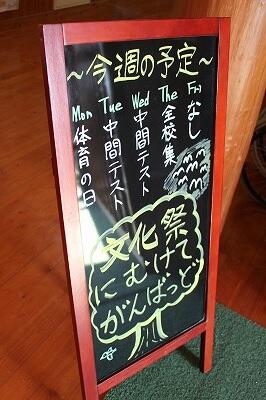 ～今週の予定～
Mon 体育の日
Tue 中間テスト
Wed 中間テスト
The 全校集
Fri なし
文化祭
にむけて
がんばっど